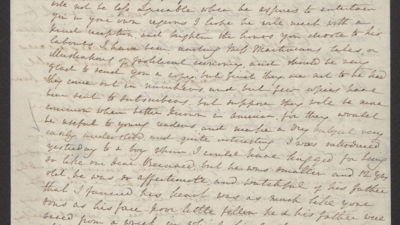 not be less sociable when he aspires to entertain
you in your own regions I hope he will meet with a
kind reception and brighten the hours you devote to his
labours. I have been reading Miss Martineau's tales, or
illustrations of political economy, and should be very
glad to send you a copy but find they are not to be had
they come out in numbers and but few copies have
been sent to subscribers, but suppose they will be more
common when better known in America, for they would
be useful to young readers, and make a dry subject very
easily understood and quite interesting. I was introduced
yesterday to a boy whom I could have hugged for being
so like our dear but he was smaller and
old. he was so affectionate and watchful of his father
that I fancied his heart was as much like your
sons as his face, poor little fellow he & his father were
from a